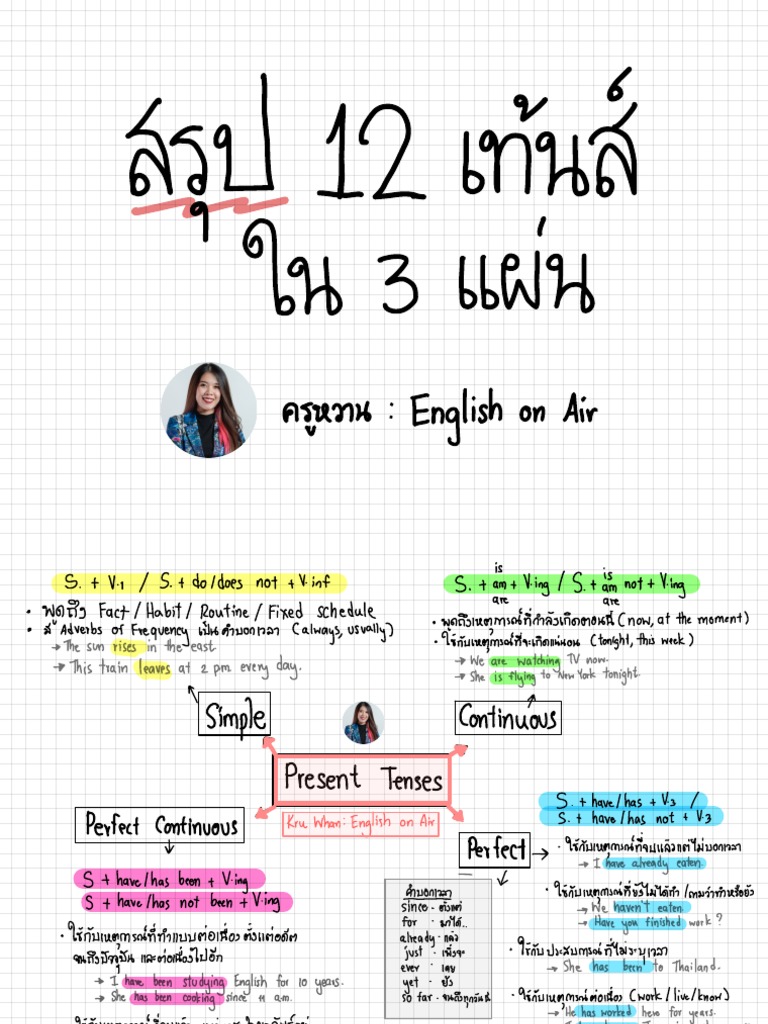 สรุป 12 เท้นส์
ใน 3 แผ่น
ครูหวาน : English on Air
S. + V.1 / S. + do/does not + V.inf
• พูดถึง Fact / Habit / Routine / Fixed schedule
• มี Adverbs of Frequency เป็นคำบอกเวลา (always, usually)
→ The sun rises in the east.
→ This train leaves at 2 pm every day.
Simple
is is
S. + am + V.ing / S. + am not + V.ing
are are
• พูดถึงเหตุการณ์ที่กำลังเกิดตอนนี้ (now, at the moment)
• ใช้กับเหตุการณ์ที่จะเกิดแน่นอน (tonight, this week)
→ We are watching TV now.
→ She is flying to New York tonight.
Continuous
Present Tenses
Kru Whan: English on Air
Perfect Continuous
S + have/has been + V.ing
S + have/has not been + V.ing
• ใช้กับเหตุการณ์ที่ทำแบบต่อเนื่อง ตั้งแต่อดีต
จนถึงปัจจุบัน และต่อเนื่องไปอีก
→ I have been studying English for 10 years.
→ She has been cooking since 11 a.m.
Perfect
S. + have/has + V.3 /
S. + have/has not + V.3
• ใช้กับเหตุการณ์ที่จบแล้วแต่ไม่บอกเวลา
→ I have already eaten.
• ใช้กับเหตุการณ์ที่ยังไม่ได้ทำ /ถามว่าทำหรือยัง
→ We haven't eaten
→ Have you finished work ?
• ใช้กับ ประสบการณ์ที่ไม่ระบุเวลา
→ She has been to Thailand.
• ใช้กับเหตุการณ์ต่อเนื่อง (work / live / know)
→ He has worked here for years.
คำบอกเวลา
since - ตั้งแต่
for - มาได้..
already - แล้ว
just - เพิ่งจะ
ever - เคย
yet - ยัง
so far - จนถึงทุกวันนี้